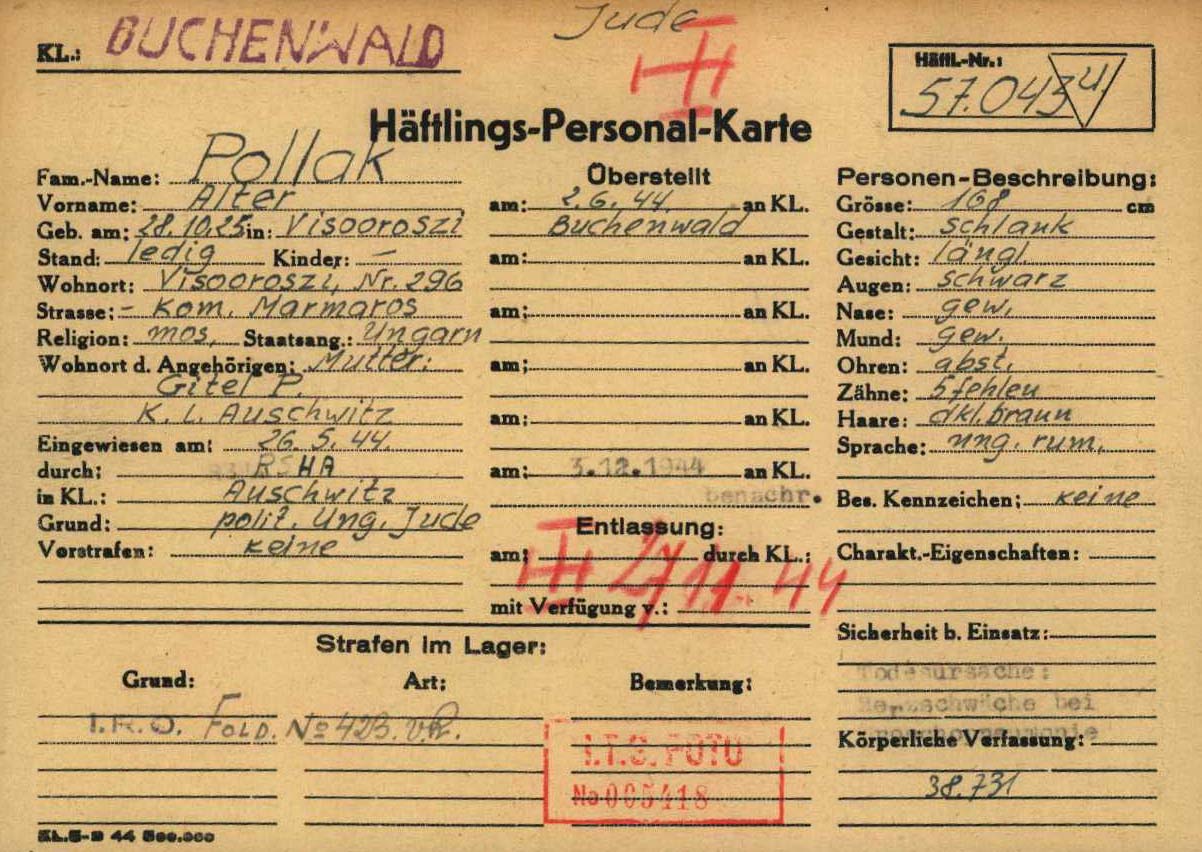 KL.: BUCHENWALD
Jude
Häftl.-Nr.:
57.043 U
Häftlings-Personal-Karte
Fam.-Name: Pollak
Vorname: Alter
Geb. am: 28.10.25 in: Visooroszi
Stand: ledig Kinder: –
Wohnort: Visooroszi, Nr. 296
Strasse: – Kom. Marmaros
Religion: mos. Staatsang.: Ungarn
Wohnort d. Angehörigen: Mutter:
Gitel P.
K. L. Auschwitz
Eingewiesen am: 26. 5. 44.
durch: RSHA
in KL.: Auschwitz
Grund: polit. Ung. Jude
Vorstrafen: keine
Überstellt
am: 2. 6. 44. an KL.
Buchenwald
am: an KL.
am: an KL.
am: an KL.
am: an KL.
am: 3.12.1944 an KL.
benachr.
Entlassung:
am: durch KL.:
27 11. 44
mit Verfügung v.:
Personen-Beschreibung:
Grösse: 168 cm
Gestalt: schlank
Gesicht: längl.
Augen: schwarz
Nase: gew.
Mund: gew.
Ohren: abst.
Zähne: 5 fehlen
Haare: dkl. braun
Sprache: ung. rum.
Bes. Kennzeichen: keine
Charakt.-Eigenschaften:
Sicherheit b. Einsatz:
Todesursache:
Herzschwäche bei
Körperliche Verfassung:
38.731
Strafen im Lager:
Grund: Art: Bemerkung:
I.R.O. FOLD. No 423.
I.T.S. FOTO
No 005418